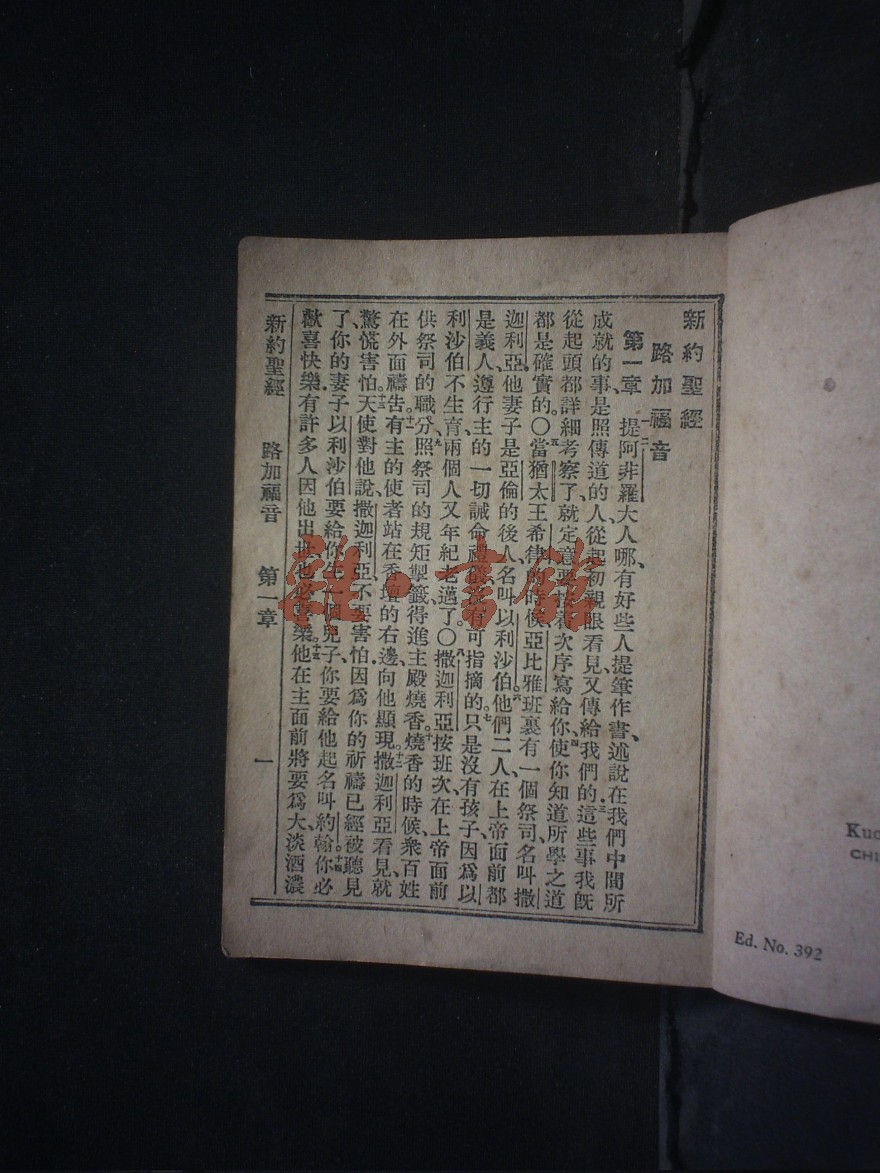 新約聖經
路加福音
第一章 一二提阿非羅大人哪、有好些人提筆作書、述說在我們中間所
成就的事、是照傳道的人、從起初親眼看見、又傳給我們的、三這些事我旣
從起頭都詳細考察了、就定意要按着次序寫給你、四使你知道所學之道
都是確實的。〇五當猶太王希律的時候、亞比雅班裏有一個祭司、名叫撒
迦利亞、他妻子是亞倫的後人、名叫以利沙伯。六他們二人、在上帝面前都
是義人、遵行主的一切誡命禮儀、沒有可指摘的。七只是沒有孩子、因爲以
利沙伯不生育、兩個人又年紀老邁了。〇八撒迦利亞按班次、在上帝面前
供祭司的職分、九照祭司的規矩掣籤、得進主殿燒香。十燒香的時候、衆百姓
在外面禱告。十一有主的使者站在香壇的右邊、向他顯現。十二撒迦利亞看見、就
驚慌害怕。十三天使對他說、撒迦利亞、不要害怕、因爲你的祈禱已經被聽見
了、你的妻子以利沙伯要給你生一個兒子、你要給他起名叫約翰。十四你必
歡喜快樂、有許多人因他出世、也必喜樂。十五他在主面前將要爲大、淡酒濃
新約聖經 路加福音 第一章 一
雜·書館
Kuo
CHI
Ed. No. 392